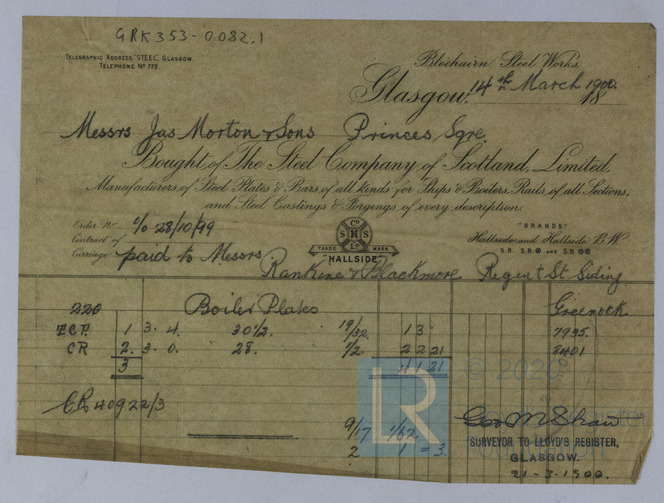 GRK353-0082.1
TELEGRAPHIC ADDRESS "STEEL", GLASGOW.
TELEPHONE Nº 773.
Blochairn Steel Works.
Glasgow, 14th March 1900
18
Messrs Jas Morton & Sons Princes Sqre
Bought of The Steel Company of Scotland, Limited.
Manufacturers of Steel Plates & Bars of all kinds for Ships & Boilers, Rails of all Sections,
and Steel Castings & Forgings of every description.
Order Nº
Contract of % 28/10/99
Carriage paid to Messrs
Cº S H S Lº
TRADE MARK
"HALLSIDE"
"BRANDS"
Hallside and Hallside B.W
S.B. S.B. and S.B.
Rankine & Blackmore Regent St Siding
220 Boiler Plates Greenock
1 3. 4. 30½. 19/32 1 3 7935.
CR 2. 3. 0. 28. 1/2 2 2 21 2401
3 4 1 21
CR 40922/3
LR
© 2020
9/17 1/62
2 1 = 3.
Geo M Shaw
SURVEYOR TO LLOYD'S REGISTER,
GLASGOW.
21-3-1900.